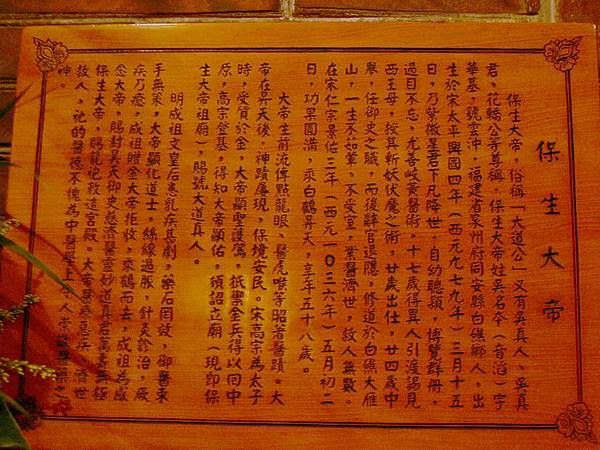 保生大帝
保生大帝，俗稱「大道公」又有吳真人、吳真
君、花轎公等尊稱。保生大帝姓吳名夲（音滔）字
華基，號雲沖，福建省泉州府同安縣白礁鄉人，出
生於宋太平興國四年（西元九七九年）三月十五
日，乃紫微星君下凡降世，自幼聰穎，博覽群冊，
過目不忘，尤善岐黃醫術。十七歲得異人引渡謁見
西王母，授其斬妖伏魔之術，廿歲出仕，廿四歲中
舉，任御史之職，而後辭官退隱，修道於白礁大雁
山，一生不茹葷、不受室，業醫濟世，救人無數。
在宋仁宗景佑三年（西元一０三六年）五月初二
日，功果圓滿，乘白鶴昇天，享年五十八歲。
大帝生前流傳點龍眼、醫虎喉等昭著醫蹟。大
帝在昇天後，神蹟屢現，保境安民。宋高宗為太子
時，受質於金，大帝顯聖護駕，抵禦金兵得以回中
原，高宗登基，得知大帝顯佑，頒詔立廟（現即保
生大帝祖廟），賜號大道真人。
明成祖文皇后患乳疾甚劇，藥石罔效，御醫束
手無策，大帝顯化道士，絲線過脈，針灸診治，厥
疾乃癒，成祖贈金大帝拒收，乘鶴而去，成祖為感
念大帝，賜封昊天御史慈濟醫靈妙道真君萬壽無極
保生大帝，賜龍袍敕造宮殿。大帝醫療惡疾，濟世
救人，祂的醫德不愧為中醫學上
神。